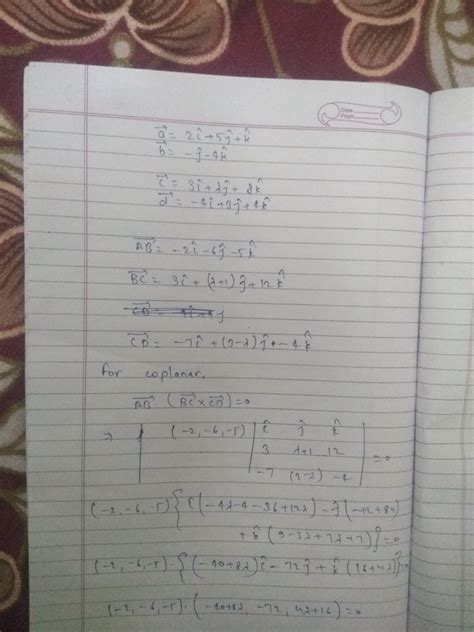 Date
Page
a⃗ = 2î+5ĵ+k̂
b⃗ = -ĵ-4k̂
c⃗ = 3î+λĵ+8k̂
d⃗ = -4î+9ĵ+4k̂
AB⃗ = -2î-6ĵ-5k̂
BC⃗ = 3î+(λ+1)ĵ+12k̂
CD⃗ = -7î+(9-λ)ĵ+-4k̂
For coplanar,
AB⃗·(BC⃗×CD⃗)=0
⇒ (-2,-6,-5) | î ĵ k̂
3 λ+1 12 | =0
-7 (9-λ) -4
(-2,-6,-5){î(-4λ-4-36+12λ)-ĵ(-12+84)
+k̂(9-3λ+7λ+7)}=0
(-2,-6,-5)·{(-40+8λ)î-72ĵ+k̂(16+4λ)}
(-2,-6,-5)·(-40+8λ,-72,4λ+16)=0